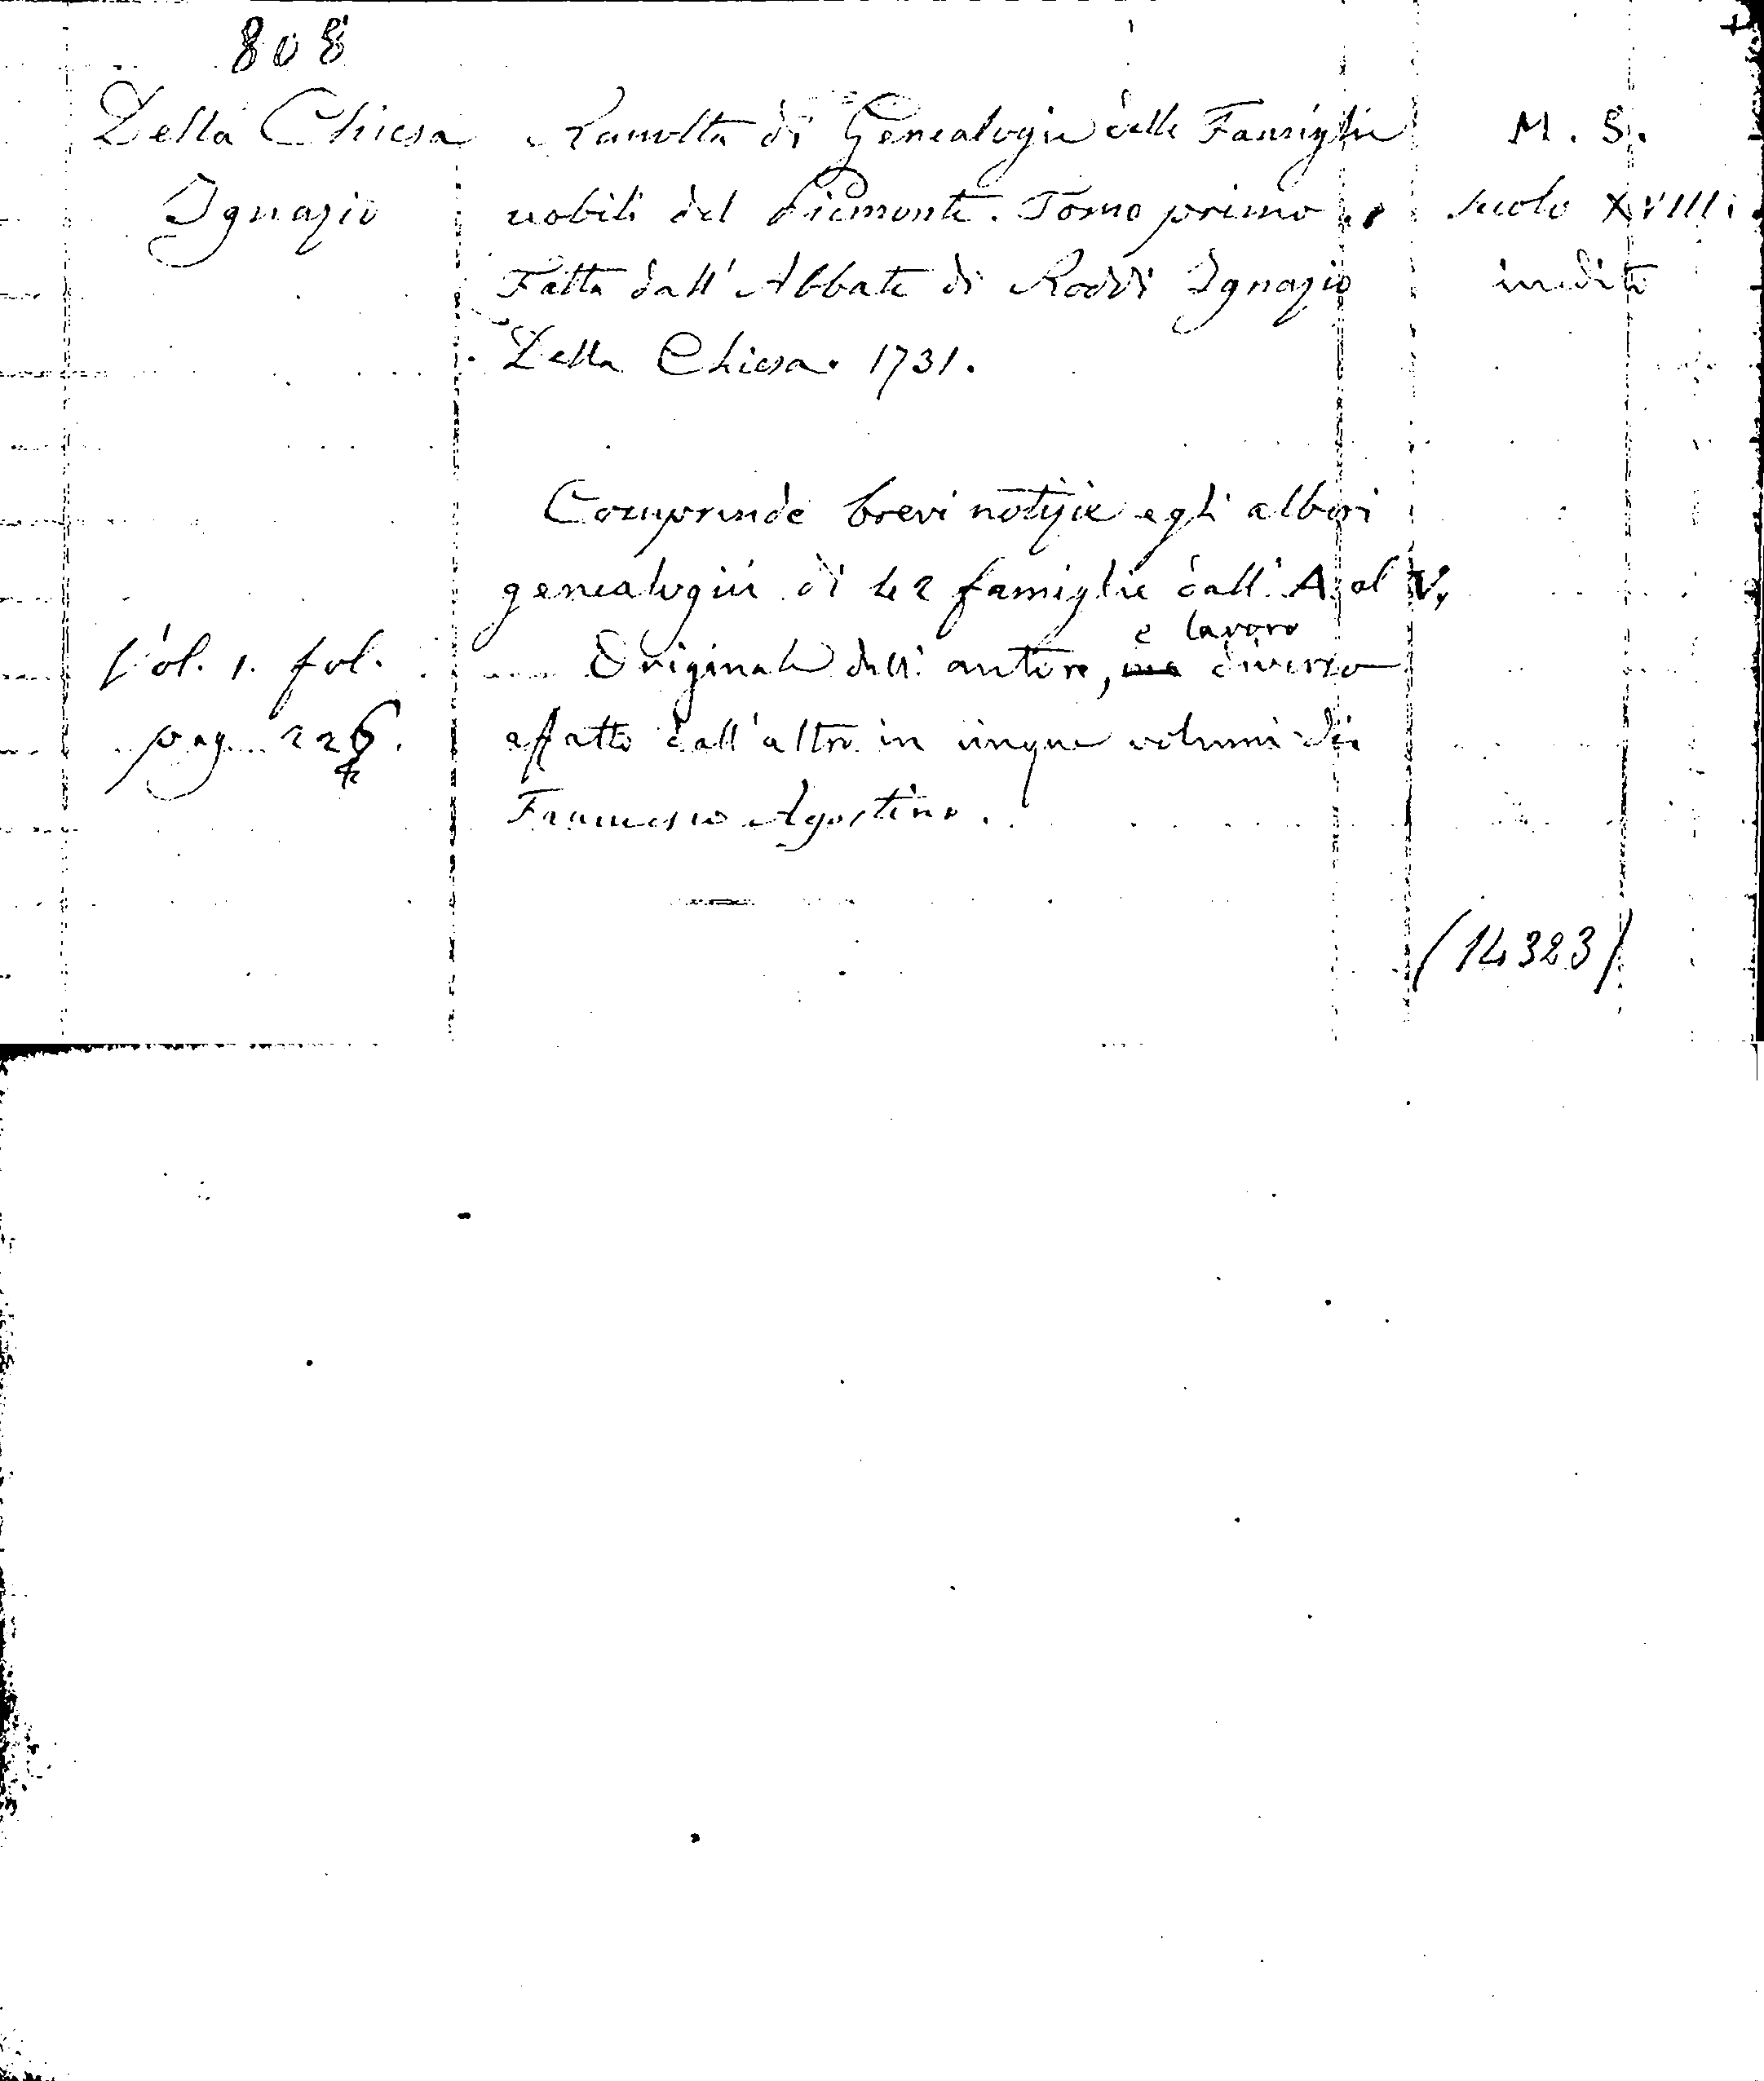 808
Della Chiesa
Ignazio
Raccolta di Genealogie delle Famiglie
nobili del Piemonte. Tomo primo.
Fatta dall' Abbate di Roddi Ignazio
Della Chiesa. 1731.
M. S.
secolo XVIII.
inedito
Comprende brevi notizie e gli alberi
genealogici di 42 famiglie dall' A al V,
Vol. 1. fol.
pag. 226.
è lavoro
Originale dell' autore, ma diverso
affatto dall' altro in cinque volumi di
Francesco Agostino.
(14323)